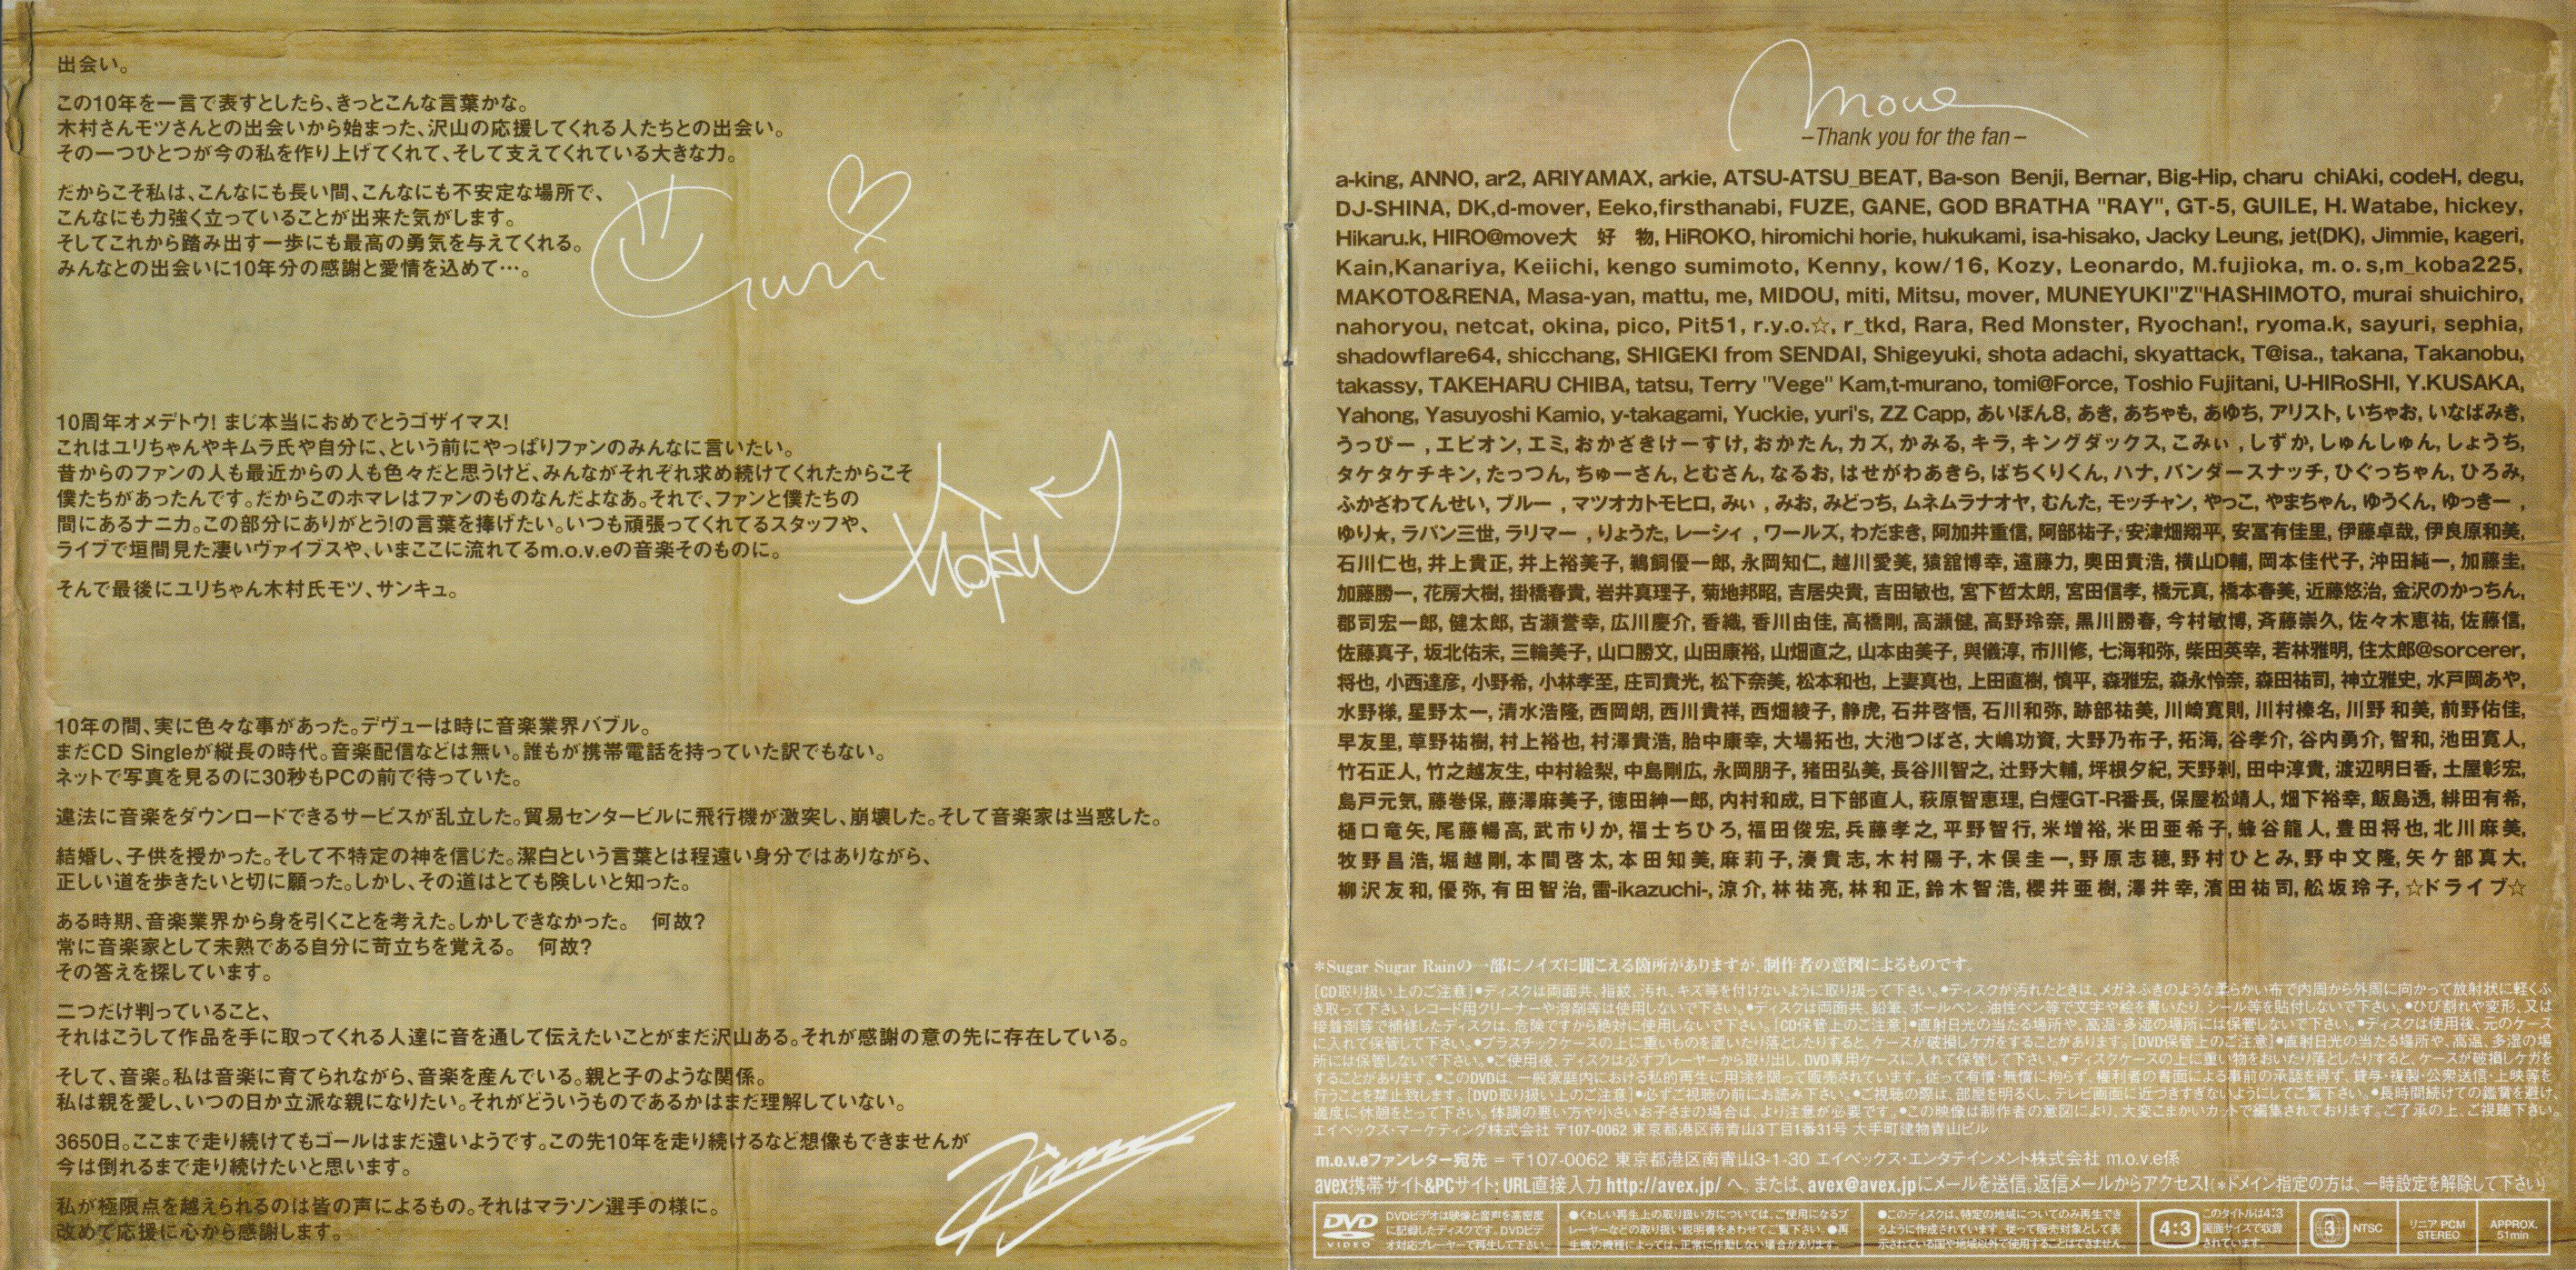 出会い。
この10年を一言で表すとしたら、きっとこんな言葉かな。
木村さんモツさんとの出会いから始まった、沢山の応援してくれる人たちとの出会い。
その一つひとつが今の私を作り上げてくれて、そして支えてくれている大きな力。
だからこそ私は、こんなにも長い間、こんなにも不安定な場所で、
こんなにも力強く立っていることが出来た気がします。
そしてこれから踏み出す一歩にも最高の勇気を与えてくれる。
みんなとの出会いに10年分の感謝と愛情を込めて…。
yuri
10周年オメデトウ! まじ本当におめでとうゴザイマス!
これはユリちゃんやキムラ氏や自分に、という前にやっぱりファンのみんなに言いたい。
昔からのファンの人も最近からの人も色々だと思うけど、みんながそれぞれ求め続けてくれたからこそ
僕たちがあったんです。だからこのホマレはファンのものなんだよなあ。それで、ファンと僕たちの
間にあるナニカ。この部分にありがとう!の言葉を捧げたい。いつも頑張ってくれてるスタッフや、
ライブで垣間見た凄いヴァイブスや、いまここに流れてるm.o.v.eの音楽そのものに。
そんで最後にユリちゃん木村氏モツ、サンキュ。
motsu
10年の間、実に色々な事があった。デヴューは時に音楽業界バブル。
まだCD Singleが縦長の時代。音楽配信などは無い。誰もが携帯電話を持っていた訳でもない。
ネットで写真を見るのに30秒もPCの前で待っていた。
違法に音楽をダウンロードできるサービスが乱立した。貿易センタービルに飛行機が激突し、崩壊した。そして音楽家は当惑した。
結婚し、子供を授かった。そして不特定の神を信じた。潔白という言葉とは程遠い身分ではありながら、
正しい道を歩きたいと切に願った。しかし、その道はとても険しいと知った。
ある時期、音楽業界から身を引くことを考えた。しかしできなかった。 何故?
常に音楽家として未熟である自分に苛立ちを覚える。 何故?
その答えを探しています。
二つだけ判っていること、
それはこうして作品を手に取ってくれる人達に音を通して伝えたいことがまだ沢山ある。それが感謝の意の先に存在している。
そして、音楽。私は音楽に育てられながら、音楽を産んでいる。親と子のような関係。
私は親を愛し、いつの日か立派な親になりたい。それがどういうものであるかはまだ理解していない。
3650日。ここまで走り続けてもゴールはまだ遠いようです。この先10年を走り続けるなど想像もできませんが
今は倒れるまで走り続けたいと思います。
私が極限点を越えられるのは皆の声によるもの。それはマラソン選手の様に。
改めて応援に心から感謝します。
move
–Thank you for the fan–
a-king, ANNO, ar2, ARIYAMAX, arkie, ATSU-ATSU_BEAT, Ba-son Benji, Bernar, Big-Hip, charu chiAki, codeH, degu,
DJ-SHINA, DK,d-mover, Eeko,firsthanabi, FUZE, GANE, GOD BRATHA "RAY", GT-5, GUILE, H. Watabe, hickey,
Hikaru.k, HIRO@move大 好 物, HiROKO, hiromichi horie, hukukami, isa-hisako, Jacky Leung, jet(DK), Jimmie, kageri,
Kain,Kanariya, Keiichi, kengo sumimoto, Kenny, kow/16, Kozy, Leonardo, M.fujioka, m. o. s,m_koba225,
MAKOTO&RENA, Masa-yan, mattu, me, MIDOU, miti, Mitsu, mover, MUNEYUKI"Z"HASHIMOTO, murai shuichiro,
nahoryou, netcat, okina, pico, Pit51, r.y.o.☆, r_tkd, Rara, Red Monster, Ryochan!, ryoma.k, sayuri, sephia,
shadowflare64, shicchang, SHIGEKI from SENDAI, Shigeyuki, shota adachi, skyattack, T@isa., takana, Takanobu,
takassy, TAKEHARU CHIBA, tatsu, Terry "Vege" Kam,t-murano, tomi@Force, Toshio Fujitani, U-HIRoSHI, Y.KUSAKA,
Yahong, Yasuyoshi Kamio, y-takagami, Yuckie, yuri's, ZZ Capp, あいぽん8, あき, あちゃも, あゆち, アリスト, いちゃお, いなばみき,
うっぴー , エビオン, エミ, おかざきけーすけ, おかたん, カズ, かみる, キラ, キングダックス, こみぃ , しずか, しゅんしゅん, しょうち,
タケタケチキン, たっつん, ちゅーさん, とむさん, なるお, はせがわあきら, ぱちくりくん, ハナ, バンダースナッチ, ひぐっちゃん, ひろみ,
ふかざわてんせい, ブルー , マツオカトモヒロ, みぃ , みお, みどっち, ムネムラナオヤ, むんた, モッチャン, やっこ, やまちゃん, ゆうくん, ゆっきー ,
ゆり★, ラパン三世, ラリマー , りょうた, レーシィ , ワールズ, わだまき, 阿加井重信, 阿部祐子, 安津畑翔平, 安冨有佳里, 伊藤卓哉, 伊良原和美,
石川仁也, 井上貴正, 井上裕美子, 鵜飼優一郎, 永岡知仁, 越川愛美, 猿舘博幸, 遠藤力, 奥田貴浩, 横山D輔, 岡本佳代子, 沖田純一, 加藤圭,
加藤勝一, 花房大樹, 掛橋春貴, 岩井真理子, 菊地邦昭, 吉居央貴, 吉田敏也, 宮下哲太朗, 宮田信孝, 橋元真, 橋本春美, 近藤悠治, 金沢のかっちん,
郡司宏一郎, 健太郎, 古瀬誉幸, 広川慶介, 香織, 香川由佳, 高橋剛, 高瀬健, 高野玲奈, 黒川勝春, 今村敏博, 斉藤崇久, 佐々木恵祐, 佐藤信,
佐藤真子, 坂北佑未, 三輪美子, 山口勝文, 山田康裕, 山畑直之, 山本由美子, 與儀淳, 市川修, 七海和弥, 柴田英幸, 若林雅明, 住太郎@sorcerer,
将也, 小西達彦, 小野希, 小林孝至, 庄司貴光, 松下奈美, 松本和也, 上妻真也, 上田直樹, 慎平, 森雅宏, 森永怜奈, 森田祐司, 神立雅史, 水戸岡あや,
水野様, 星野太一, 清水浩隆, 西岡朗, 西川貴祥, 西畑綾子, 静虎, 石井啓悟, 石川和弥, 跡部祐美, 川崎寛則, 川村榛名, 川野和美, 前野佑佳,
早友里, 草野祐樹, 村上裕也, 村澤貴浩, 胎中康幸, 大場拓也, 大池つばさ, 大嶋功資, 大野乃布子, 拓海, 谷孝介, 谷内勇介, 智和, 池田寛人,
竹石正人, 竹之越友生, 中村絵梨, 中島剛広, 永岡朋子, 猪田弘美, 長谷川智之, 辻野大輔, 坪根夕紀, 天野剃, 田中淳貴, 渡辺明日香, 土屋彰宏,
島戸元気, 藤巻保, 藤澤麻美子, 徳田紳一郎, 内村和成, 日下部直人, 萩原智恵理, 白煙GT-R番長, 保屋松靖人, 畑下裕幸, 飯島透, 緋田有希,
樋口竜矢, 尾藤暢高, 武市りか, 福士ちひろ, 福田俊宏, 兵藤孝之, 平野智行, 米増裕, 米田亜希子, 蜂谷龍人, 豊田将也, 北川麻美,
牧野昌浩, 堀越剛, 本間啓太, 本田知美, 麻莉子, 湊貴志, 木村陽子, 木俣圭一, 野原志穂, 野村ひとみ, 野中文隆, 矢ケ部真大,
柳沢友和, 優弥, 有田智治, 雷-ikazuchi-, 涼介, 林祐亮, 林和正, 鈴木智浩, 櫻井亜樹, 澤井幸, 濱田祐司, 舩坂玲子, ☆ドライブ☆
*Sugar Sugar Rainの一部にノイズに聞こえる箇所がありますが、制作者の意図によるものです。
[CD取り扱い上のご注意]●ディスクは両面共、指紋、汚れ、キズ等を付けないように取り扱って下さい。●ディスクが汚れたときは、メガネふきのような柔らかい布で内周から外周に向かって放射状に軽くふ
き取って下さい。レコード用クリーナーや溶剤等は使用しないで下さい。●ディスクは両面共、鉛筆、ボールペン、油性ペン等で文字や絵を書いたり、シール等を貼付しないで下さい。●ひび割れや変形、又は
接着剤等で補修したディスクは、危険ですから絶対に使用しないで下さい。[CD保管上のご注意]●直射日光の当たる場所や、高温・多湿の場所には保管しないで下さい。●ディスクは使用後、元のケース
に入れて保管して下さい。●プラスチックケースの上に重いものを置いたり落としたりすると、ケースが破損しケガをすることがあります。[DVD保管上のご注意]●直射日光の当たる場所や、高温、多湿の場
所には保管しないで下さい。●ご使用後、ディスクは必ずプレーヤーから取り出し、DVD専用ケースに入れて保管して下さい。●ディスクケースの上に重い物をおいたり落としたりすると、ケースが破損しケガを
することがあります。●このDVDは、一般家庭内における私的再生に用途を限って販売されています。従って有償・無償に拘らず、権利者の書面による事前の承諾を得ず、貸与・複製・公衆送信・上映等を
行うことを禁止致します。[DVD取り扱い上のご注意]●必ずご視聴の前にお読み下さい。●ご視聴の際は、部屋を明るくし、テレビ画面に近づきすぎないようにしてご覧下さい。●長時間続けての鑑賞を避け、
適度に休憩をとって下さい。体調の悪い方や小さいお子さまの場合は、より注意が必要です。●この映像は制作者の意図により、大変こまかいカットで編集されております。ご了承の上、ご視聴下さい。
エイベックス・マーケティング株式会社 〒107-0062 東京都港区南青山3丁目1番31号 大手町建物青山ビル
m.o.v.eファンレター宛先 = 〒107-0062 東京都港区南青山3-1-30 エイベックス・エンタテインメント株式会社 m.o.v.e係
avex携帯サイト&PCサイト: URL直接入力 http://avex.jp/ へ。または、avex@avex.jpにメールを送信。返信メールからアクセス!(*ドメイン指定の方は、一時設定を解除して下さい)
DVD VIDEO
DVDビデオは映像と音声を高密度
に記録したディスクです。DVDビデ
オ対応プレーヤーで再生して下さい。
●くわしい再生上の取り扱い方については、ご使用になるプ
レーヤーなどの取り扱い説明書をあわせてご覧下さい。●再
生機の機種によっては、正常に作動しない場合があります。
●このディスクは、特定の地域についてのみ再生でき
るように作成されています。従って販売対象として表
示されている国や地域以外で使用することはできません。
4:3
このタイトルは4:3
画面サイズで収録
されています。
3 NTSC
リニア PCM
STEREO
APPROX.
51min